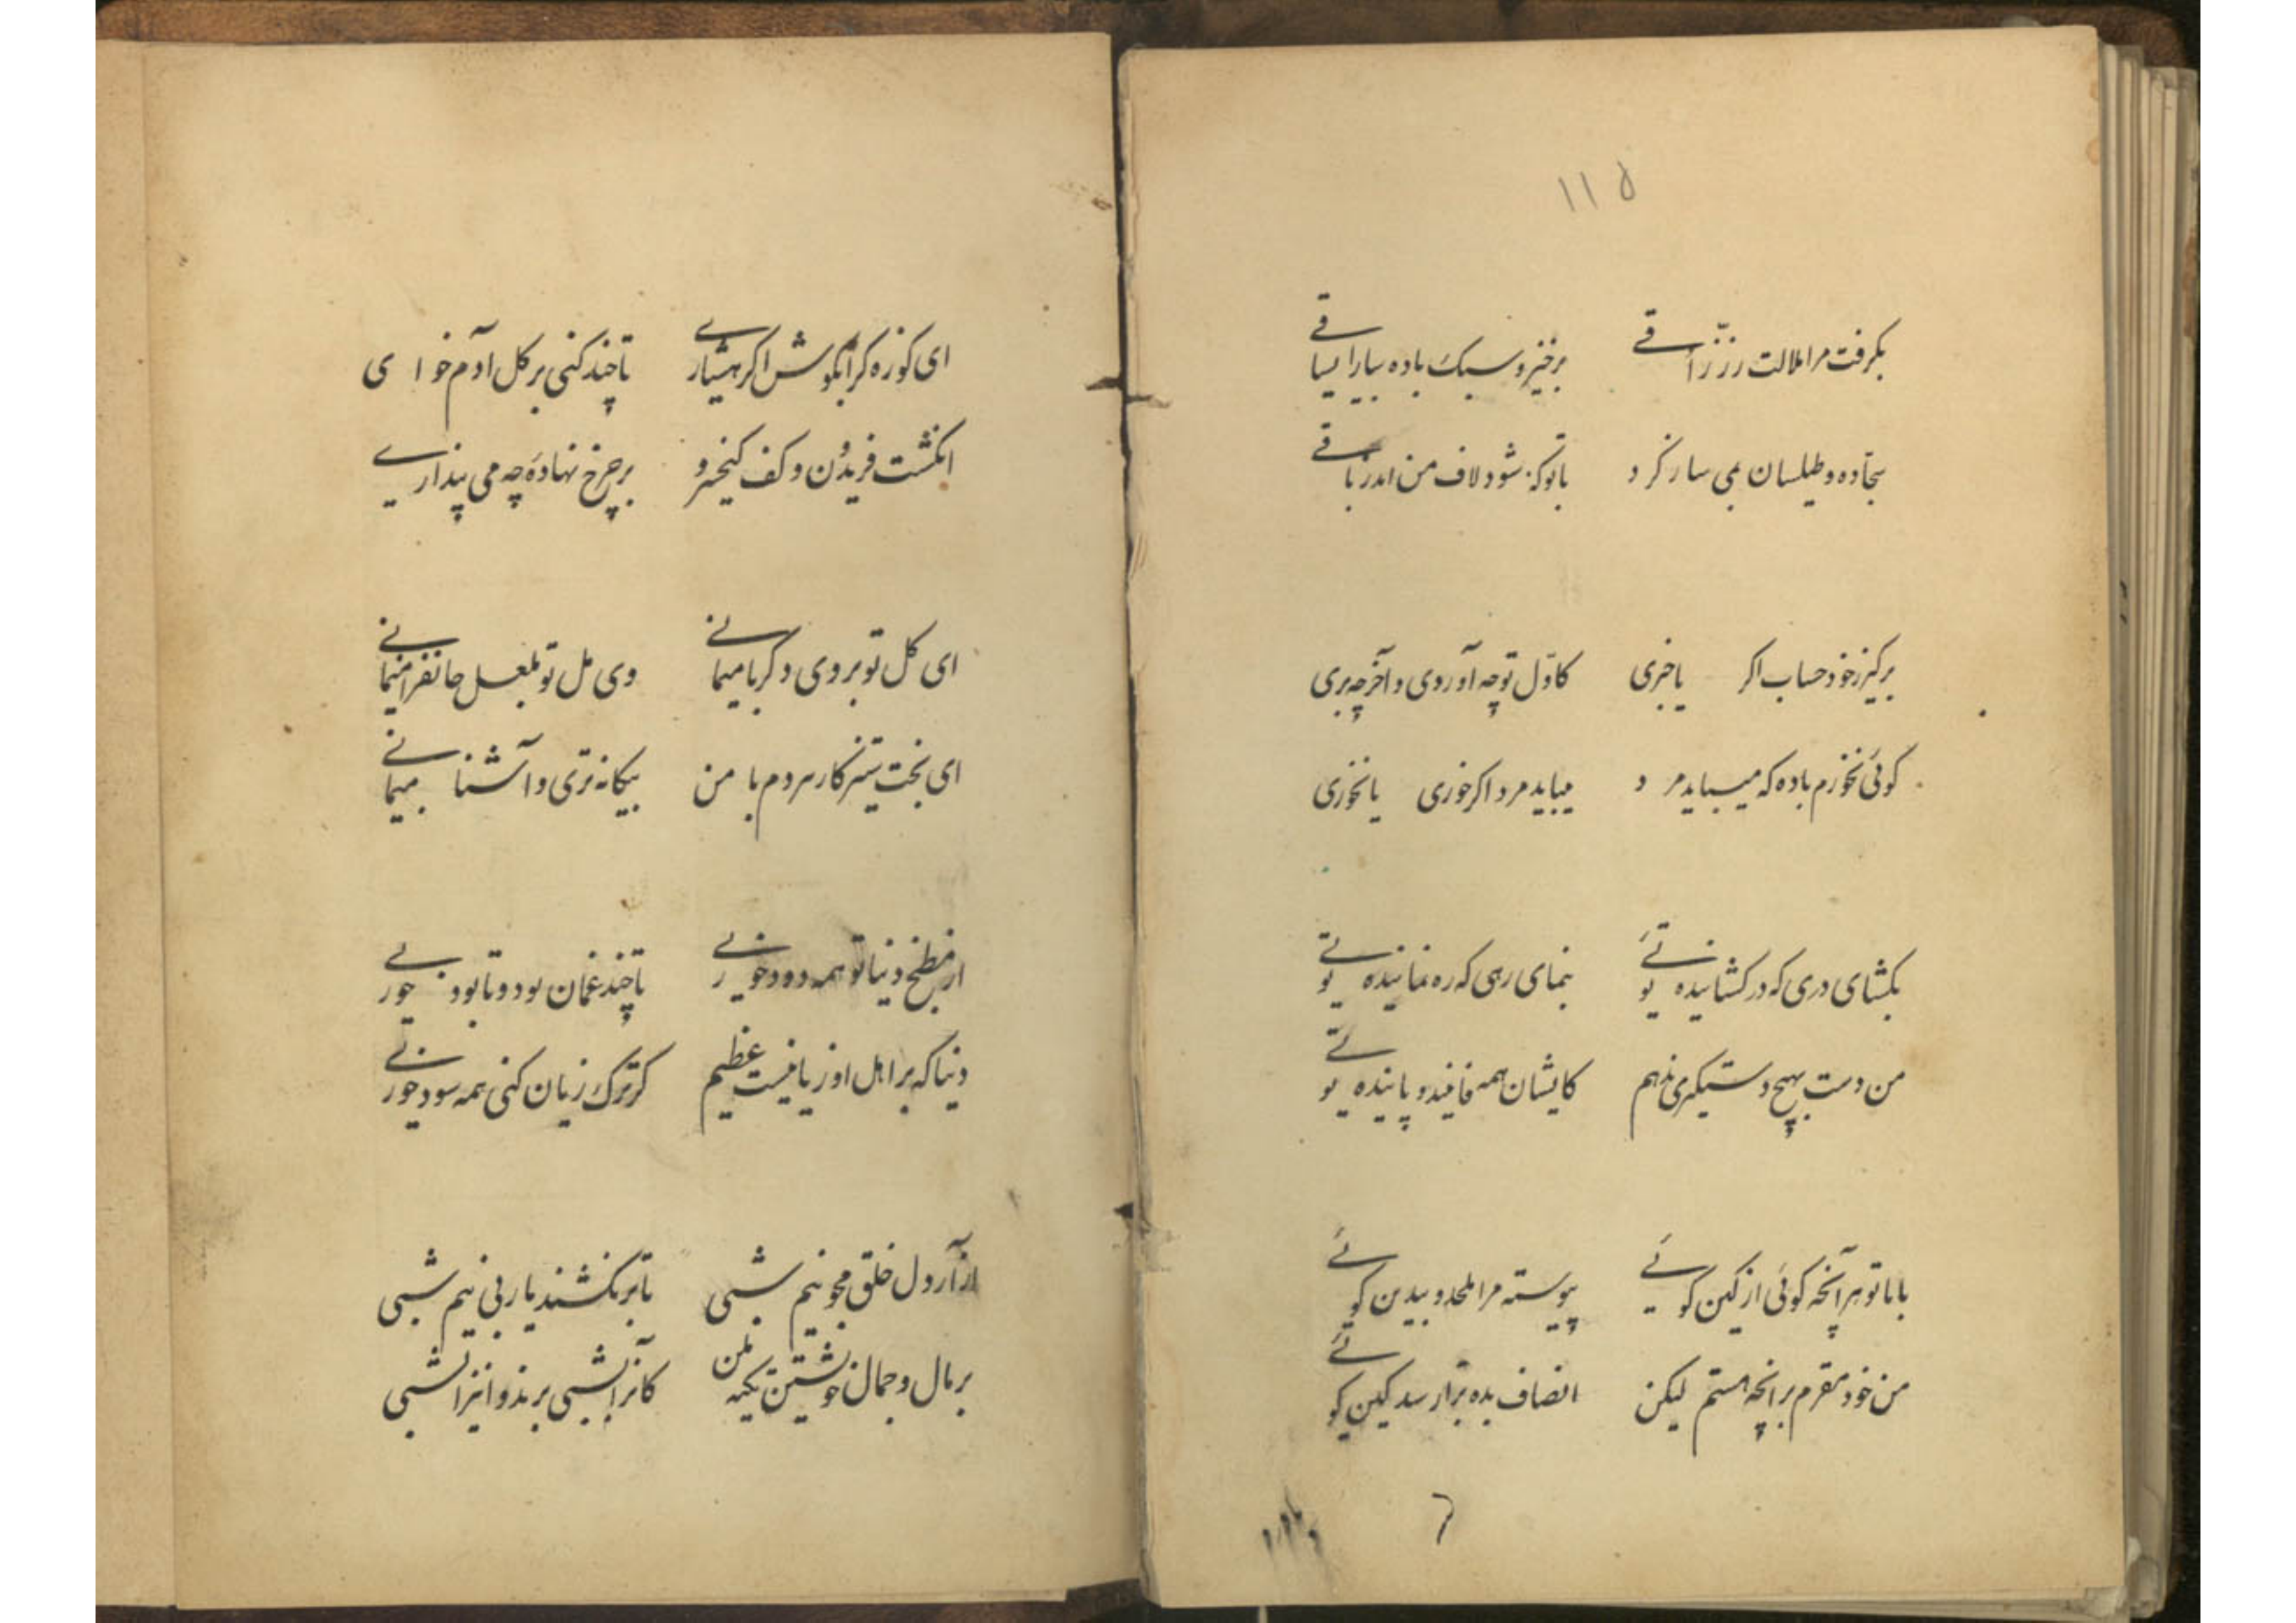 ۱۱۵
بگرفت مرا ملالت رزّاقی برخیز و سبک باده بیار ای ساقی
سجاده و طیلسان بمی سار کرد باتو که شود لاف من اندر باقی
برگیر ز خود حساب اگر باخبری کاوّل تو چه آوردی و آخر چه بری
گوئی نخورم باده که میباید مرد میباید مرد اگر خوری یا نخوری
بگشای دری که در گشاینده توئی بنمای رهی که ره نماینده توئی
من دست بهیچ دستگیری ندهم کایشان همه فانیند و پاینده توئی
با ما تو هر آنچه گوئی از کین گوئی پیوسته مرا ملحد و بیدین گوئی
من خود مقرم برانچه هستم لیکن انصاف بده ترا رسد کین گوئی
ای کوزه گرا بکوش اگر هشیاری تا چند کنی بر گل آدم خواری
انگشت فریدون و کف کیخسرو بر چرخ نهادهٔ چه می پنداری
ای گل تو بروی دلربا میمانی وی مل تو بلعل جانفزا میمانی
ای بخت ستیزه کار هر دم با من بیگانه تری و آشنا میمانی
از مطبخ دنیا تو همه دود خوری تا چند غمان بود و نابود خوری
دنیا که بر اهل او زیانیست عظیم گر ترک زیان کنی همه سود خوری
ازار دل خلق مجو نیم شبی تا برنکشند یاربی نیم شبی
بر مال و جمال خویشتن تکیه مکن کانرا بشبی برند و اینرا بشبی